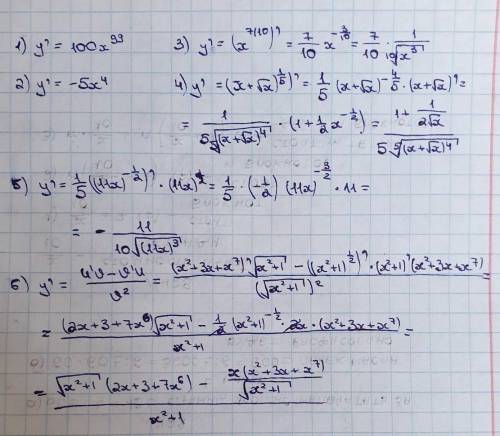 1) y' = 100x⁹⁹
3) y' = (x^(7/10))' = 7/10 x^(-3/10) = 7/10 · 1/¹⁰√x³
2) y' = -5x⁴
4) y' = ((x+√x)^(1/5))' = 1/5 (x+√x)^(-4/5) · (x+√x)' =
= 1/(5 ⁵√(x+√x)⁴) · (1 + 1/2 x^(-1/2)) = (1 + 1/(2√x))/(5 ⁵√(x+√x)⁴)
5) y' = 1/5 ((11x)^(-1/2))' · (11x)' = 1/5 · (-1/2) (11x)^(-3/2) · 11 =
= - 11/(10√(11x)³)
6) y' = (u'v - v'u)/v² = ((x²+3x+x⁷)' √(x²+1) - ((x²+1)^(1/2))' · (x²+1)' (x²+3x+x⁷))/(√(x²+1))² =
= ((2x+3+7x⁶)√(x²+1) - 1/2 (x²+1)^(-1/2) · 2x · (x²+3x+x⁷))/(x²+1) =
= (√(x²+1) (2x+3+7x⁶) - x(x²+3x+x⁷)/√(x²+1))/(x²+1)